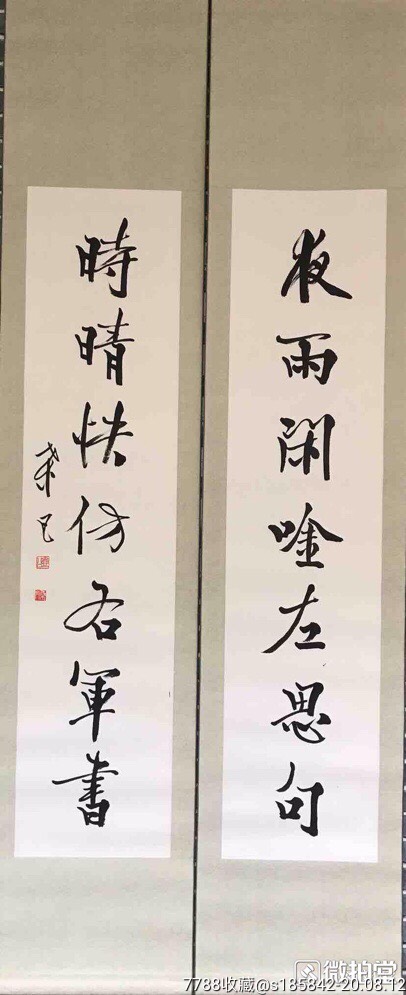 夜雨閑唫左思句
時晴快仿右軍書
微拍堂
7788收藏@s185842-20.08.12